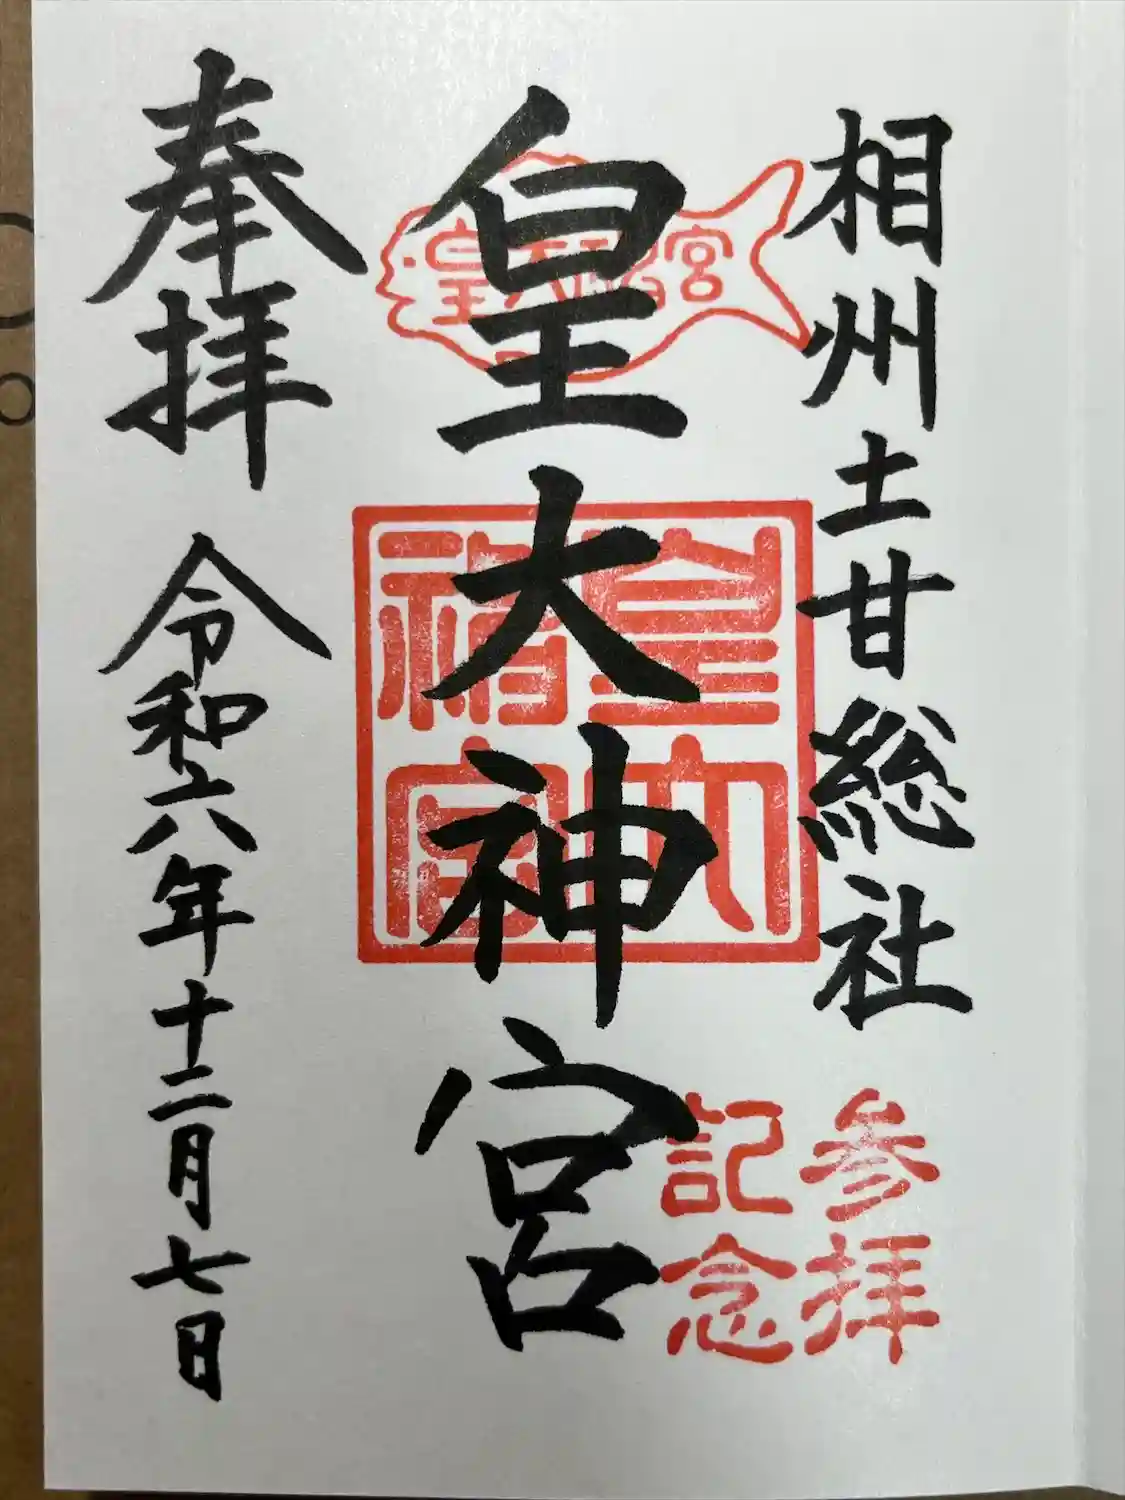 相州土甘総社
参拝
記念
皇大神宮
皇大神宮
皇大神宮
奉拝
令和六年十二月七日